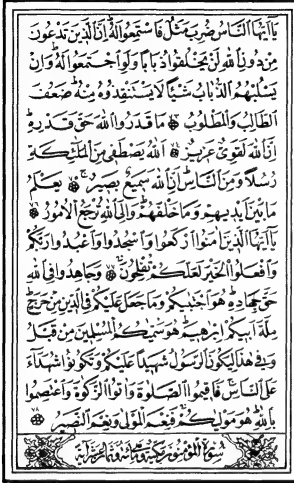 يَا أَيُّهَا النَّاسُ ضُرِبَ مَثَلٌ فَاسْتَمِعُوا لَهُ إِنَّ الَّذِينَ تَدْعُونَ
مِنْ دُونِ اللهِ لَنْ يَخْلُقُوا ذُبَابًا وَلَوِ اجْتَمَعُوا لَهُ وَإِنْ
يَسْلُبْهُمُ الذُّبَابُ شَيْئًا لَا يَسْتَنْقِذُوهُ مِنْهُ ضَعُفَ
الطَّالِبُ وَالْمَطْلُوبُ مَا قَدَرُوا اللهَ حَقَّ قَدْرِهِ
إِنَّ اللهَ لَقَوِيٌّ عَزِيزٌ اللهُ يَصْطَفِي مِنَ الْمَلٰئِكَةِ
رُسُلًا وَمِنَ النَّاسِ إِنَّ اللهَ سَمِيعٌ بَصِيرٌ يَعْلَمُ
مَا بَيْنَ أَيْدِيهِمْ وَمَا خَلْفَهُمْ وَإِلَى اللهِ تُرْجَعُ الْأُمُورُ
يَا أَيُّهَا الَّذِينَ اٰمَنُوا ارْكَعُوا وَاسْجُدُوا وَاعْبُدُوا رَبَّكُمْ
وَافْعَلُوا الْخَيْرَ لَعَلَّكُمْ تُفْلِحُونَ وَجَاهِدُوا فِي اللهِ
حَقَّ جِهَادِهِ هُوَ اجْتَبٰيكُمْ وَمَا جَعَلَ عَلَيْكُمْ فِي الدِّينِ مِنْ حَرَجٍ
مِلَّةَ أَبِيكُمْ إِبْرٰهِيمَ هُوَ سَمّٰيكُمُ الْمُسْلِمِينَ مِنْ قَبْلُ
وَفِي هٰذَا لِيَكُونَ الرَّسُولُ شَهِيدًا عَلَيْكُمْ وَتَكُونُوا شُهَدَاءَ
عَلَى النَّاسِ فَأَقِيمُوا الصَّلٰوةَ وَاٰتُوا الزَّكٰوةَ وَاعْتَصِمُوا
بِاللهِ هُوَ مَوْلٰيكُمْ فَنِعْمَ الْمَوْلٰى وَنِعْمَ النَّصِيرُ ٧٨
سُورَةُ الْمُؤْمِنُونَ مَكِّيَّةٌ وَهِيَ مِائَةٌ وَثَمَانِ عَشْرَةَ آيَةً